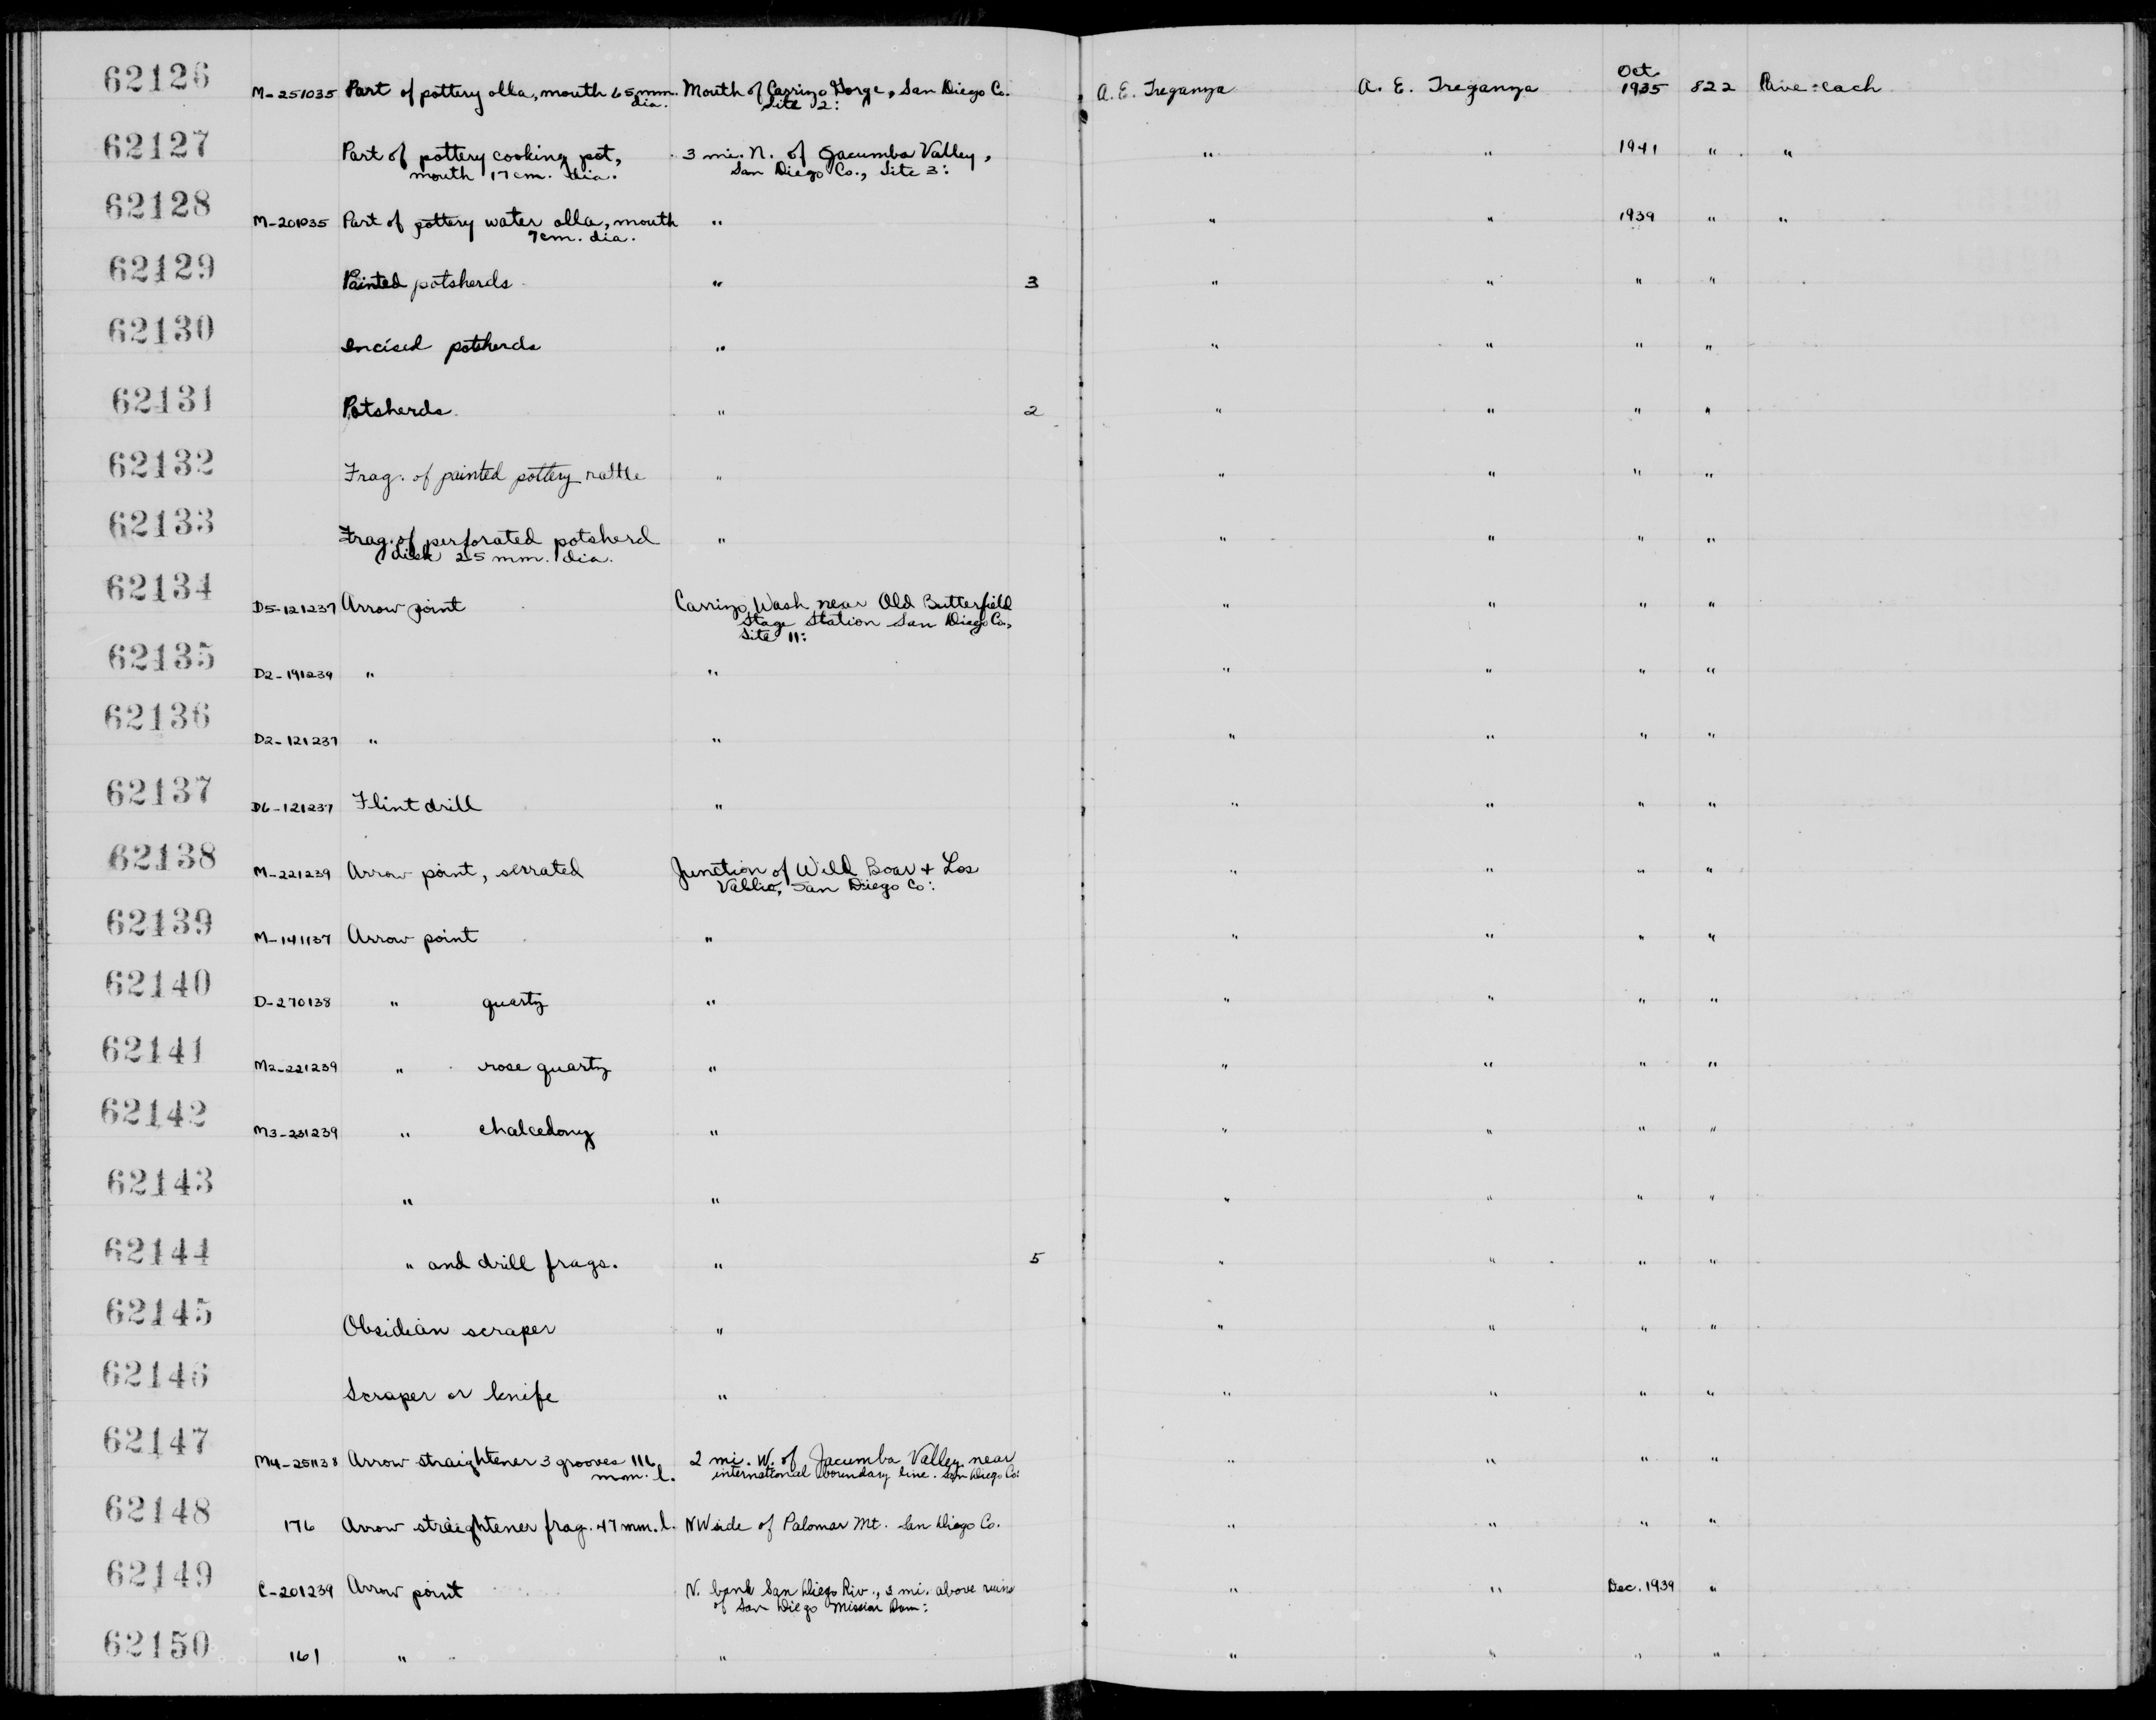 62126 M-251035 Part of pottery olla, mouth 65 mm. dia. Mouth of Carrizo Gorge, San Diego Co. Site 2: A.E. Treganza A. E. Treganza Oct 1935 822 each
62127 Part of pottery cooking pot, mouth 17 cm. dia. 3 mi. N. of Jacumba Valley, San Diego Co., Site 3: " " 1941 " "
62128 M-201035 Part of pottery water olla, mouth 7 cm. dia. " " " 1939 " "
62129 Painted potsherds " 3 " " " "
62130 Incised potsherds " " " " "
62131 Potsherds " 2 " " " "
62132 Frag. of painted pottery rattle " " " " "
62133 Frag. of perforated potsherd disk 25 mm. dia. " " " " "
62134 D5-121237 Arrow point Carrizo Wash near Old Butterfield Stage Station San Diego Co., Site 11: " " " "
62135 D2-191239 " " " " " "
62136 D2-121237 " " " " " "
62137 D6-121237 Flint drill " " " " "
62138 M-221239 Arrow point, serrated Junction of Wild Boar & Los Vallio, San Diego Co: " " " "
62139 M-141137 Arrow point " " " " "
62140 D-270138 " quartz " " " " "
62141 M2-221239 " rose quartz " " " " "
62142 M3-231239 " chalcedony " " " " "
62143 " " " " " "
62144 " and drill frags. " 5 " " " "
62145 Obsidian scraper " " " " "
62146 Scraper or knife " " " " "
62147 M4-251138 Arrow straightener 3 grooves 116 mm. l. 2 mi. W. of Jacumba Valley near international boundary line. San Diego Co: " " " "
62148 176 Arrow straightener frag. 47 mm. l. NW side of Palomar Mt. San Diego Co. " " " "
62149 C-201239 Arrow point N. bank San Diego Riv., 3 mi. above ruins of San Diego Mission Dam: " " Dec. 1939 "
62150 161 " " " " " "